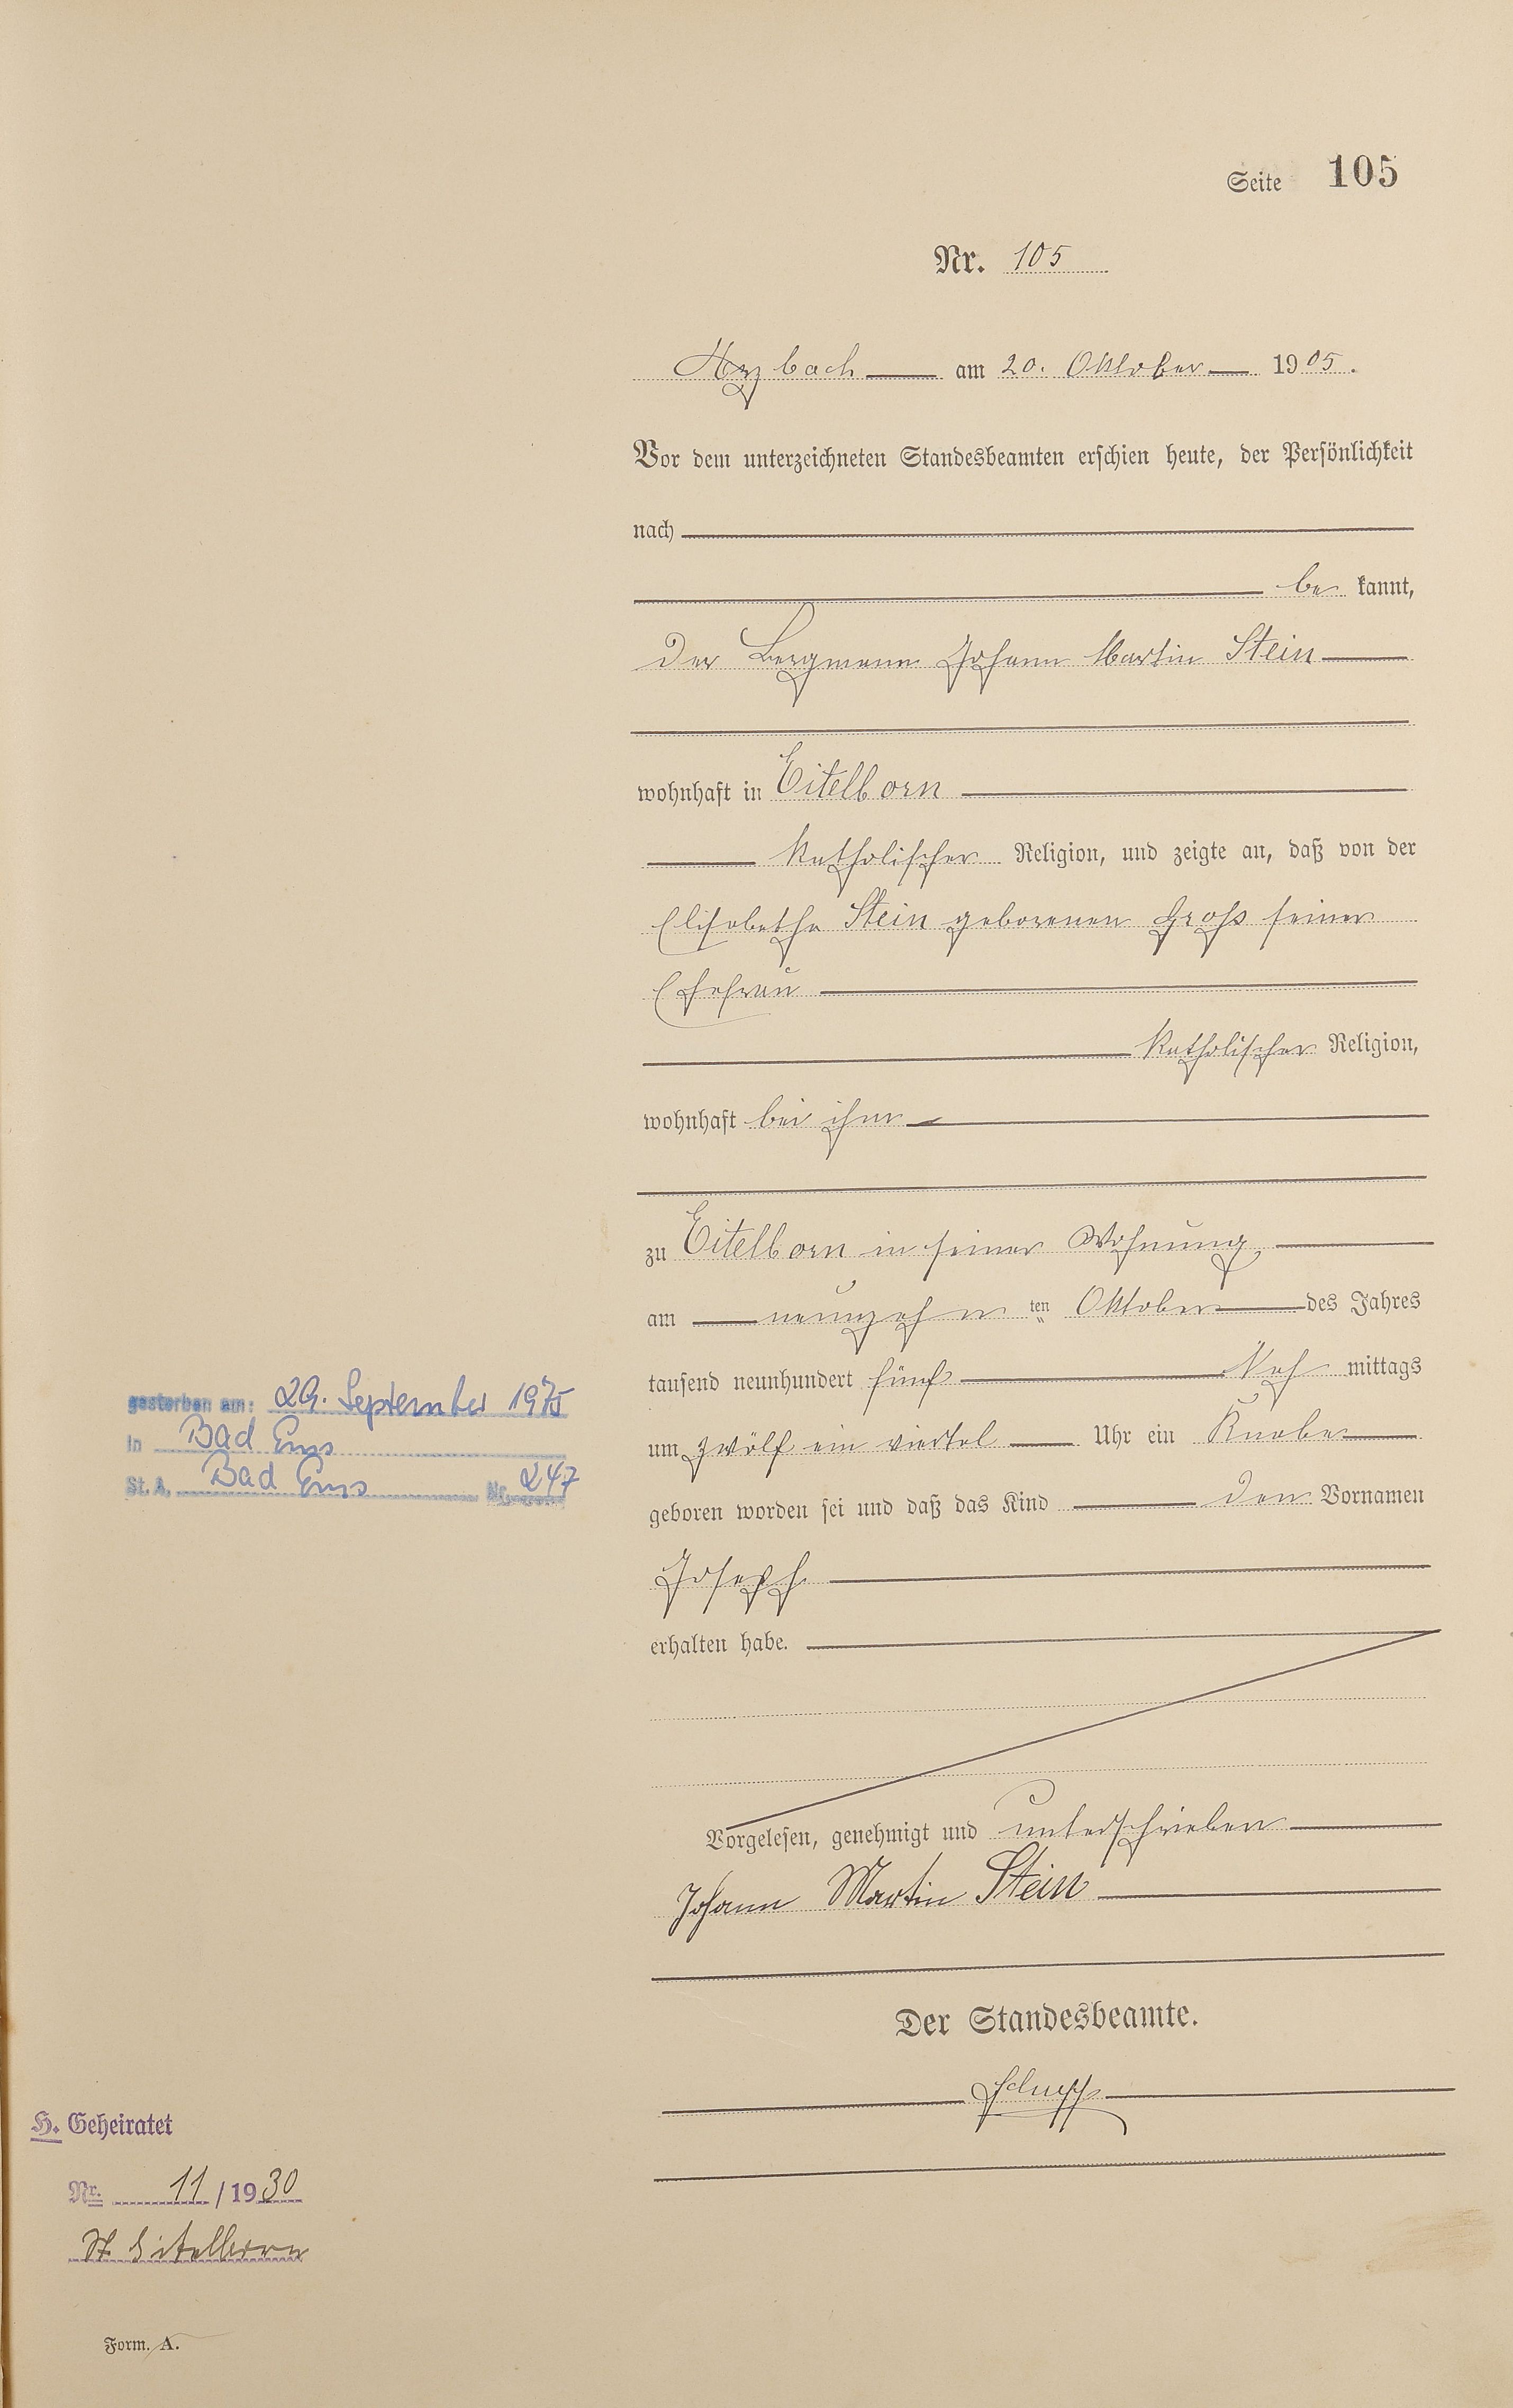 Seite 105
Nr. 105
Arzbach am 20. Oktober 1905.
Vor dem unterzeichneten Standesbeamten erschien heute, der Persönlichkeit
nach
be kannt,
der Bergmann Johann Martin Stein
wohnhaft in Eitelborn
katholischer Religion, und zeigte an, daß von der
Elisabetha Stein geborenen Groß seiner
Ehefrau
katholischer Religion,
wohnhaft bei ihm
zu Eitelborn in seiner Wohnung
am neunzehn ten Oktober des Jahres
tausend neunhundert fünf Nach mittags
um zwölf ein viertel Uhr ein Knabe
geboren worden sei und daß das Kind den Vornamen
Joseph
erhalten habe.
Vorgelesen, genehmigt und unterschrieben
Johann Martin Stein
Der Standesbeamte.
gestorben am: 29. September 1975
in Bad Ems
St. A. Bad Ems Nr. 247
H. Geheiratet
Nr. 11/1930
St Eitelborn
Form. A.